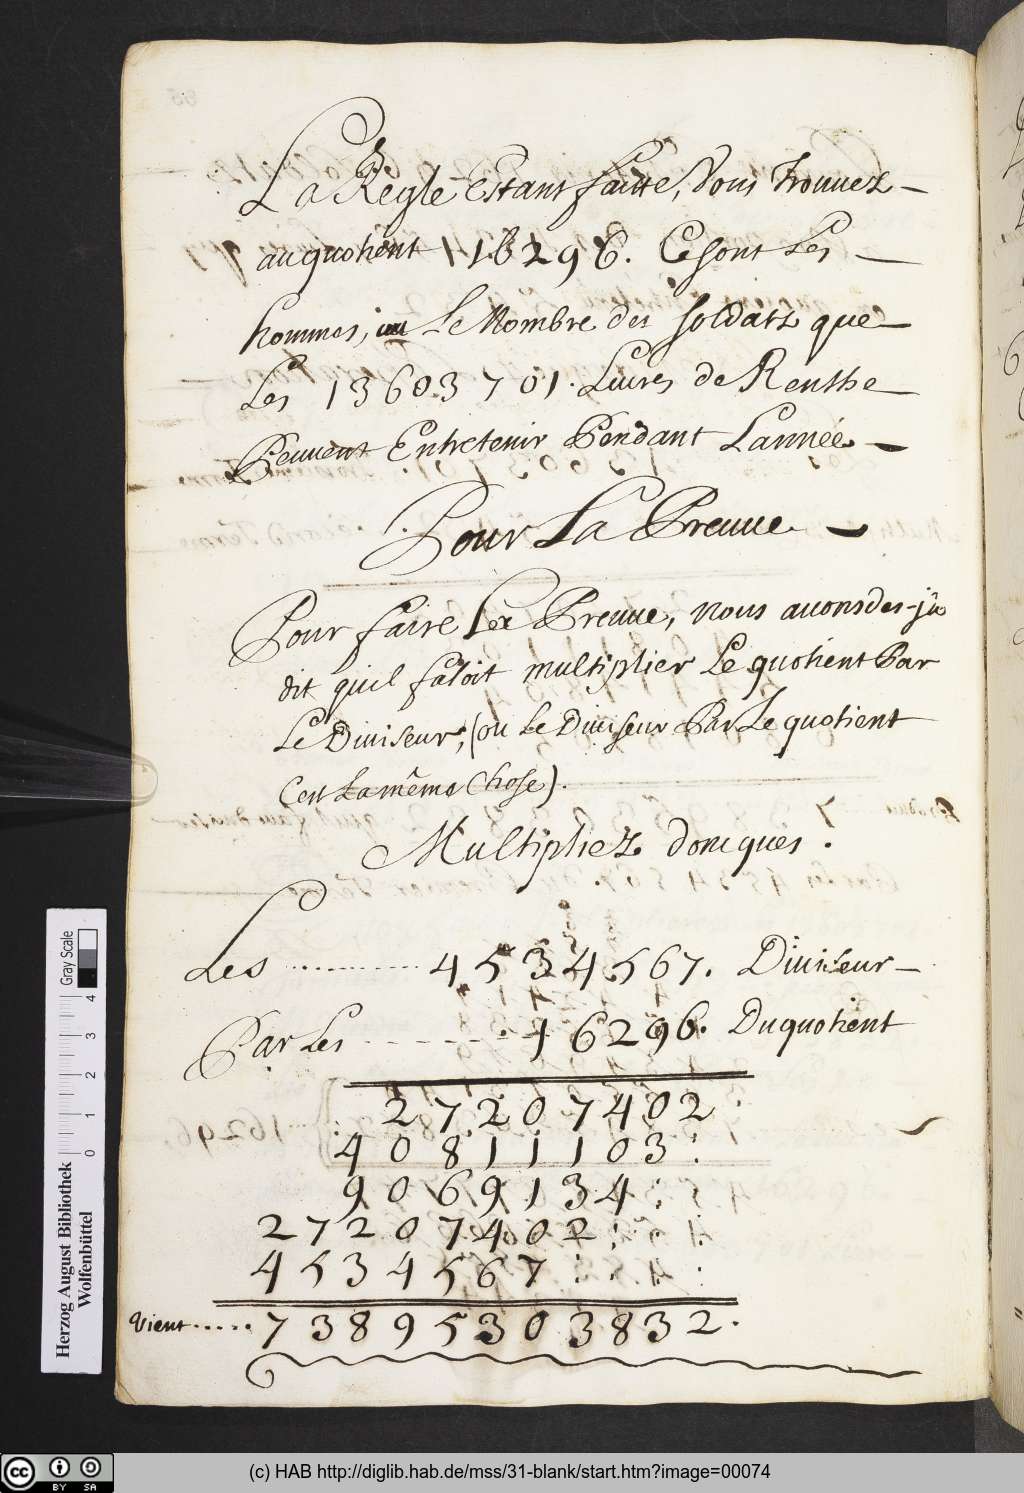 La Regle Estant faitte, Vous Trouuez
au quotient 16296. Ce sont Les
hommes, ou Le Nombre des soldats que
Les 13603701. Liures de Renthe
Peuuent Entretenir Pendant Lannée
Pour La Preuue
Pour faire La Preuue, nous auons des-ja
dit quil faloit multiplier Le quotient Par
Le Diuiseur, (ou Le Diuiseur Par Le quotient
Cest La même Chose).
Multipliez doncques.
Les 4534567. Diuiseur
Par Les 16296. Du quotient
27207402
40811103
9069134
27207402
4534567
Vient 73895303832.
Herzog August Bibliothek
Wolfenbüttel
Gray Scale
0 1 2 3 4
cc BY SA
(c) HAB http://diglib.hab.de/mss/31-blank/start.htm?image=00074